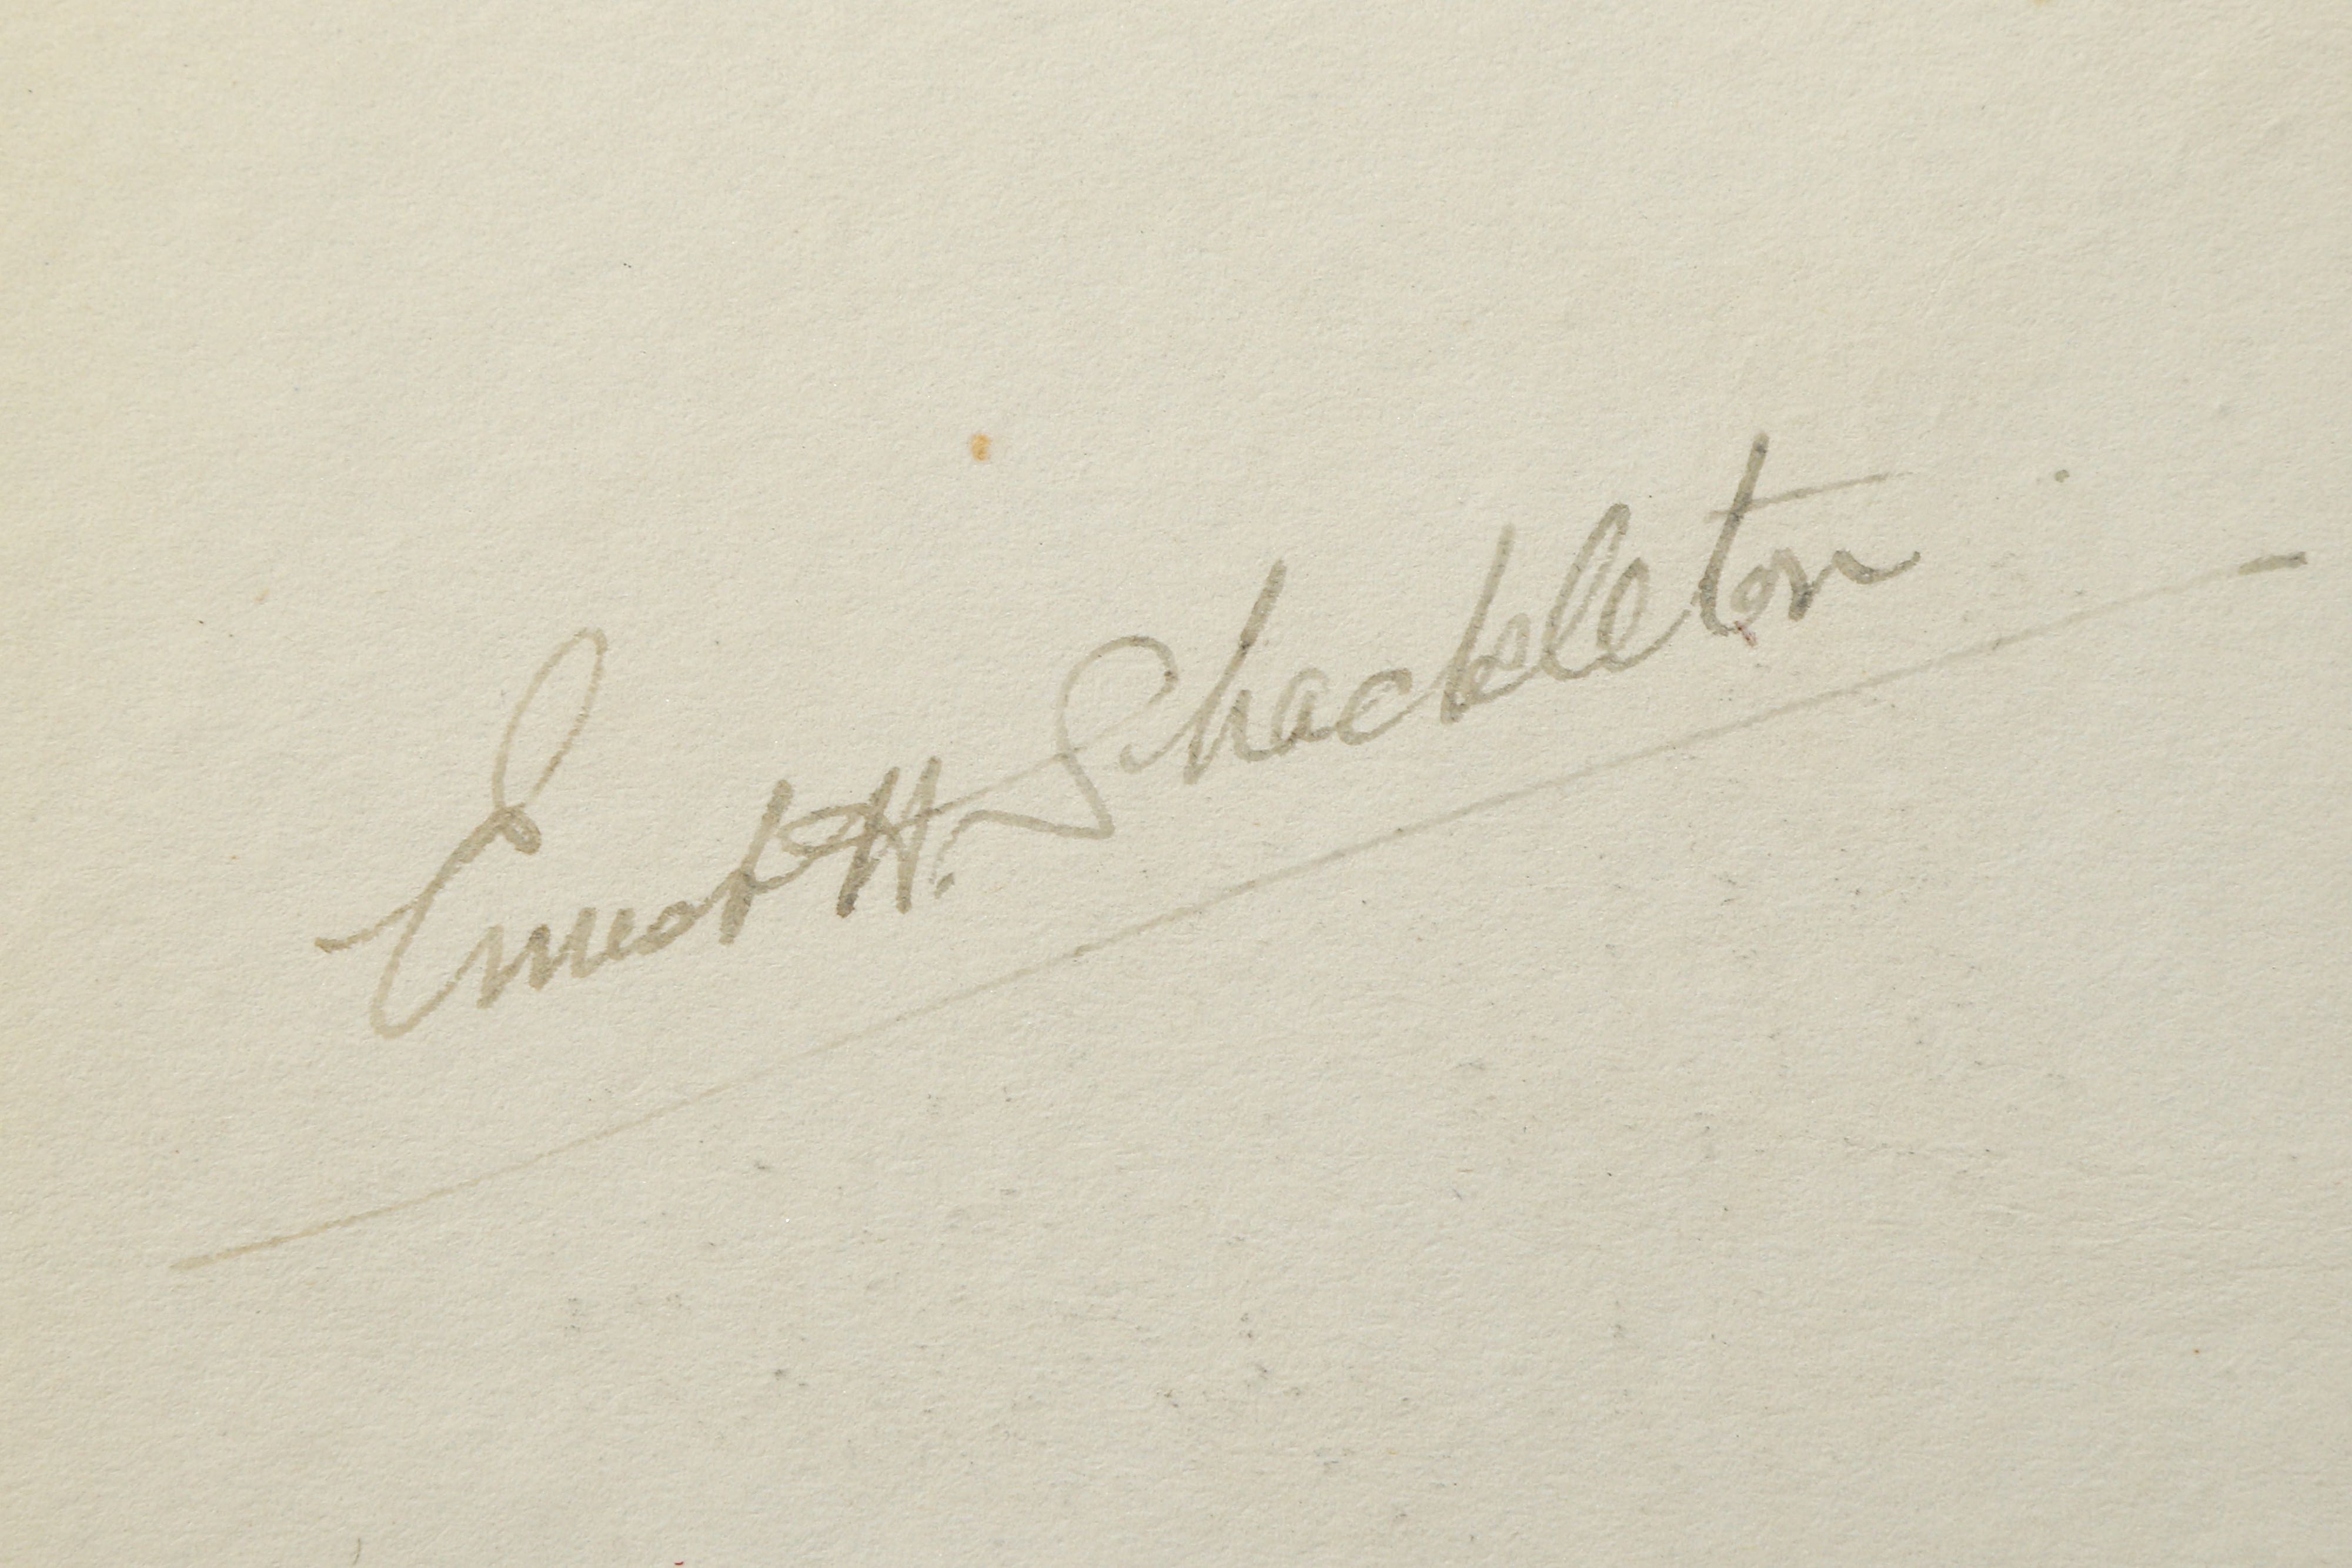 Ernest H. Shackleton